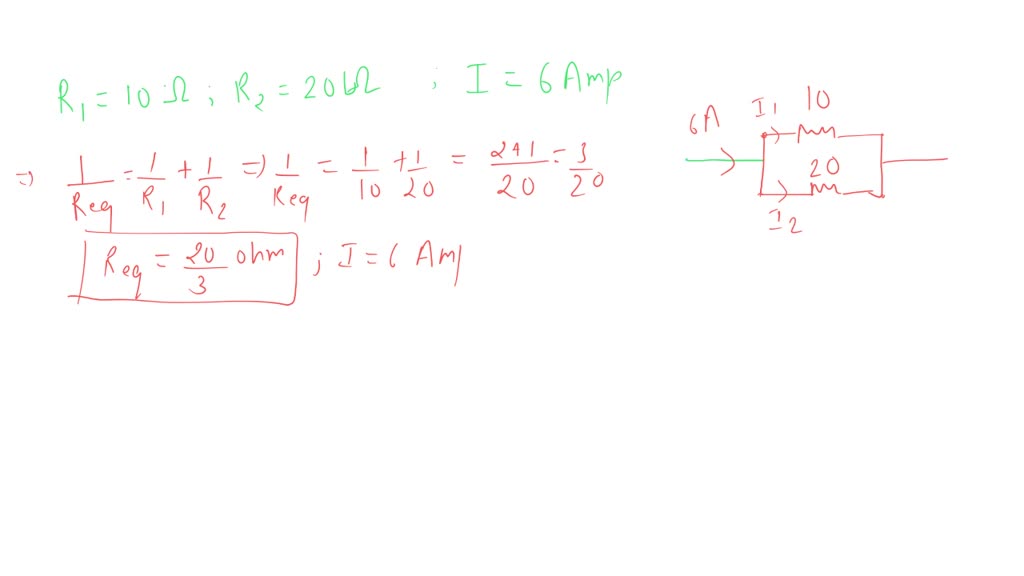 R₁ = 10 Ω ; R₂ = 20 Ω ; I = 6 Amp
⇒ 1/Req = 1/R₁ + 1/R₂ ⇒ 1/Req = 1/10 + 1/20 = 2+1/20 = 3/20
Req = 20/3 ohm ; I = 6 Amp
6A I₁ 10
20
I₂